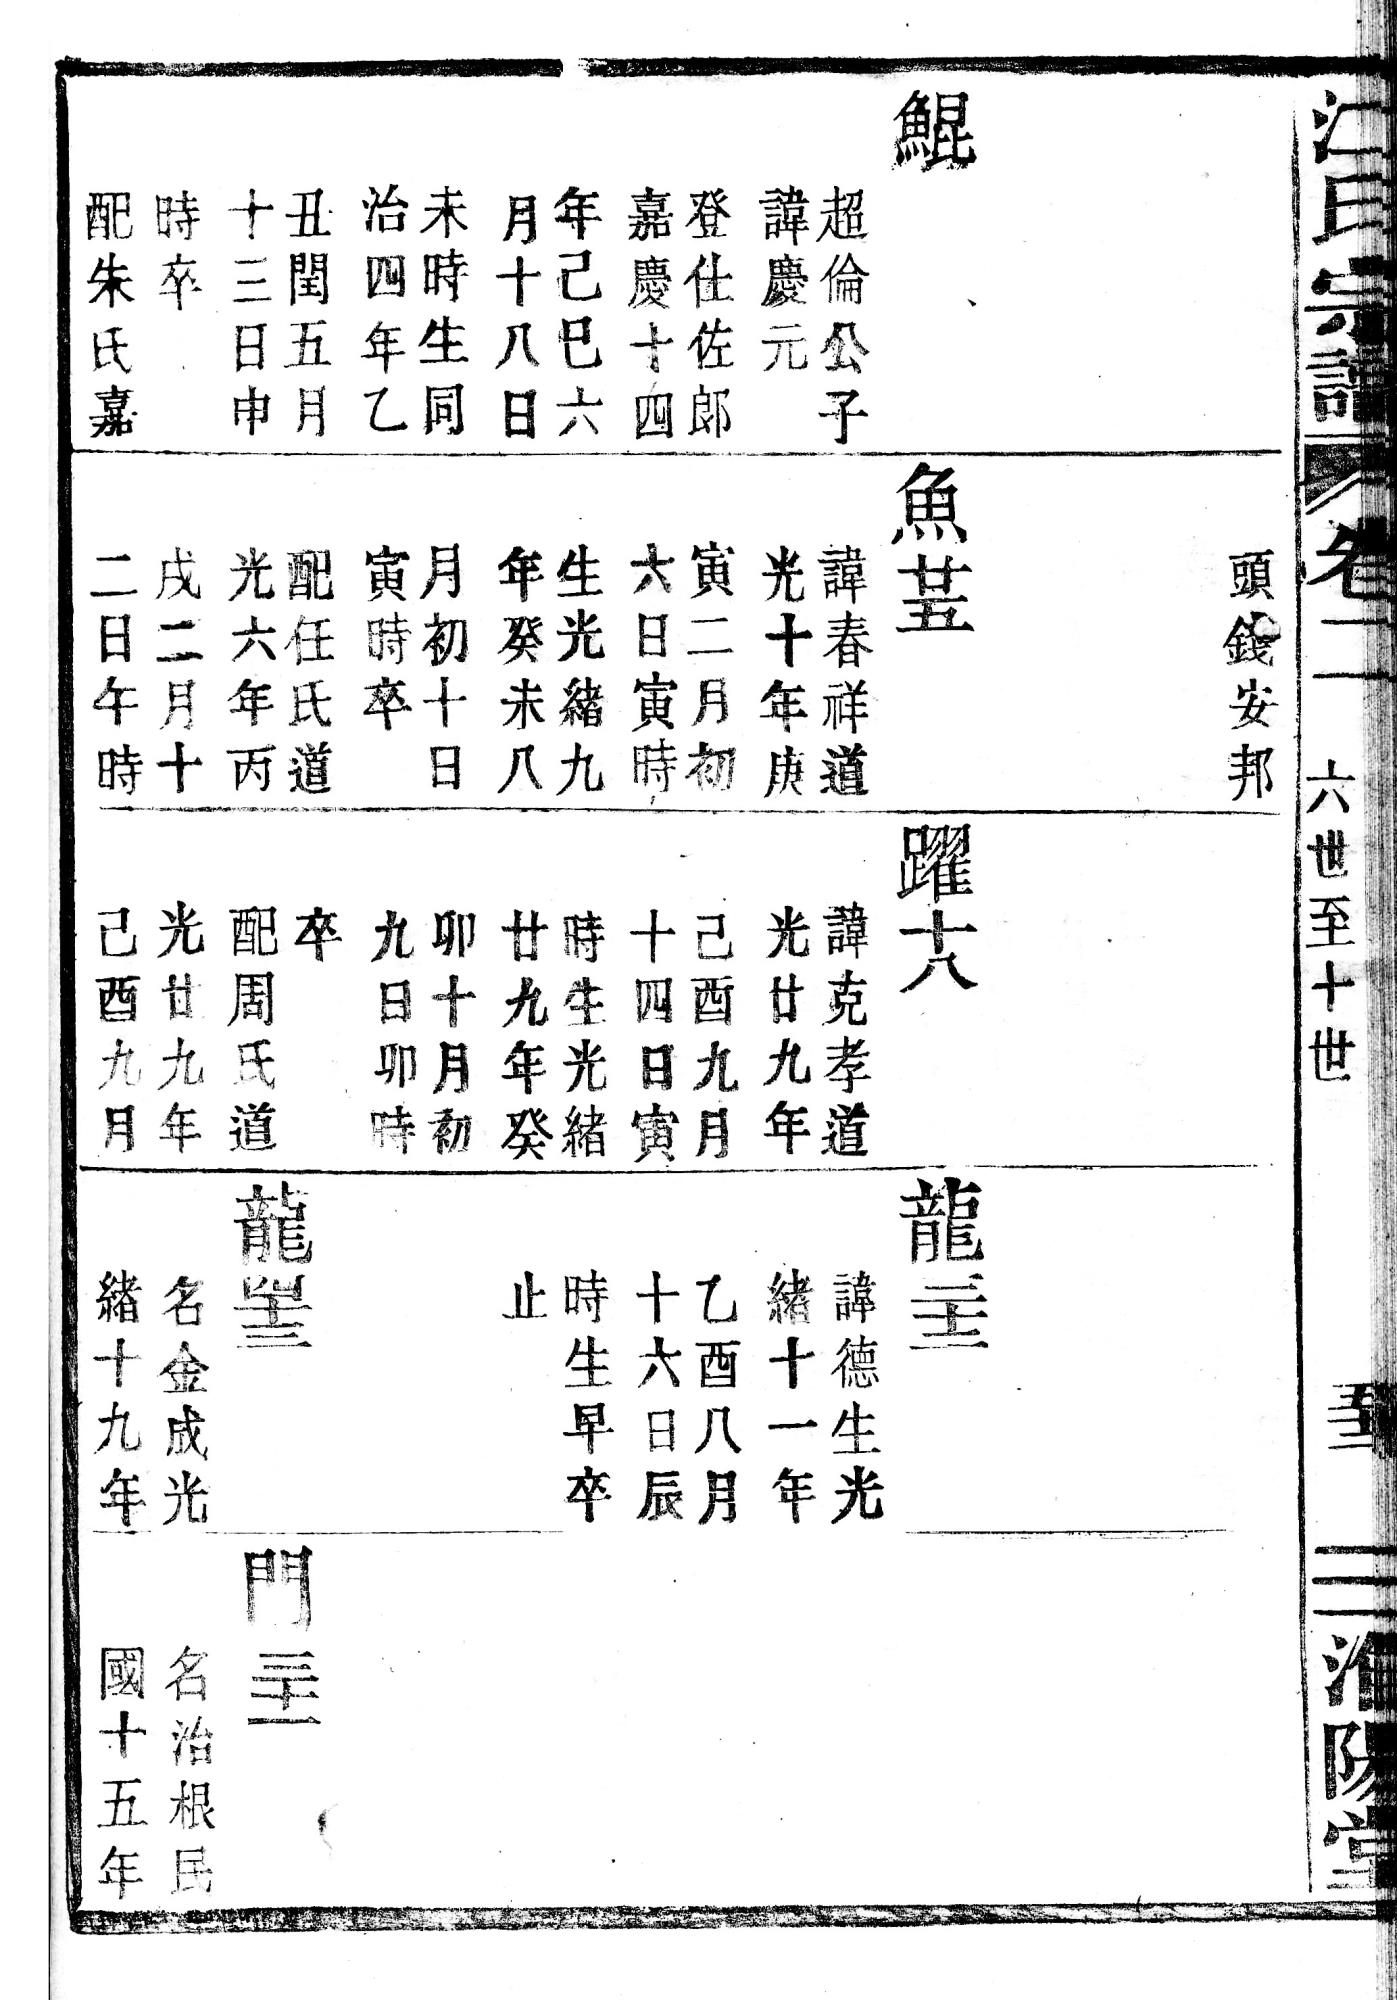 江氏宗譜
卷二
六世至十世
淮陽堂
鯤
超倫公子
諱慶元
登仕佐郎
嘉慶十四
年己巳六
月十八日
未時生同
治四年乙
丑閏五月
十三日申
時卒
配朱氏嘉
頭錢安邦
魚廿五
諱春祥道
光十年庚
寅二月初
六日寅時
生光緒九
年癸未八
月初十日
寅時卒
配任氏道
光六年丙
戌二月十
二日午時
躍十八
諱克孝道
光廿九年
己酉九月
十四日寅
時生光緒
廿九年癸
卯十月初
九日卯時
卒
配周氏道
光廿九年
己酉九月
龍三十三
諱德生光
緒十一年
乙酉八月
十六日辰
時生早卒
止
龍四十三
名金成光
緒十九年
門三十一
名治根民
國十五年